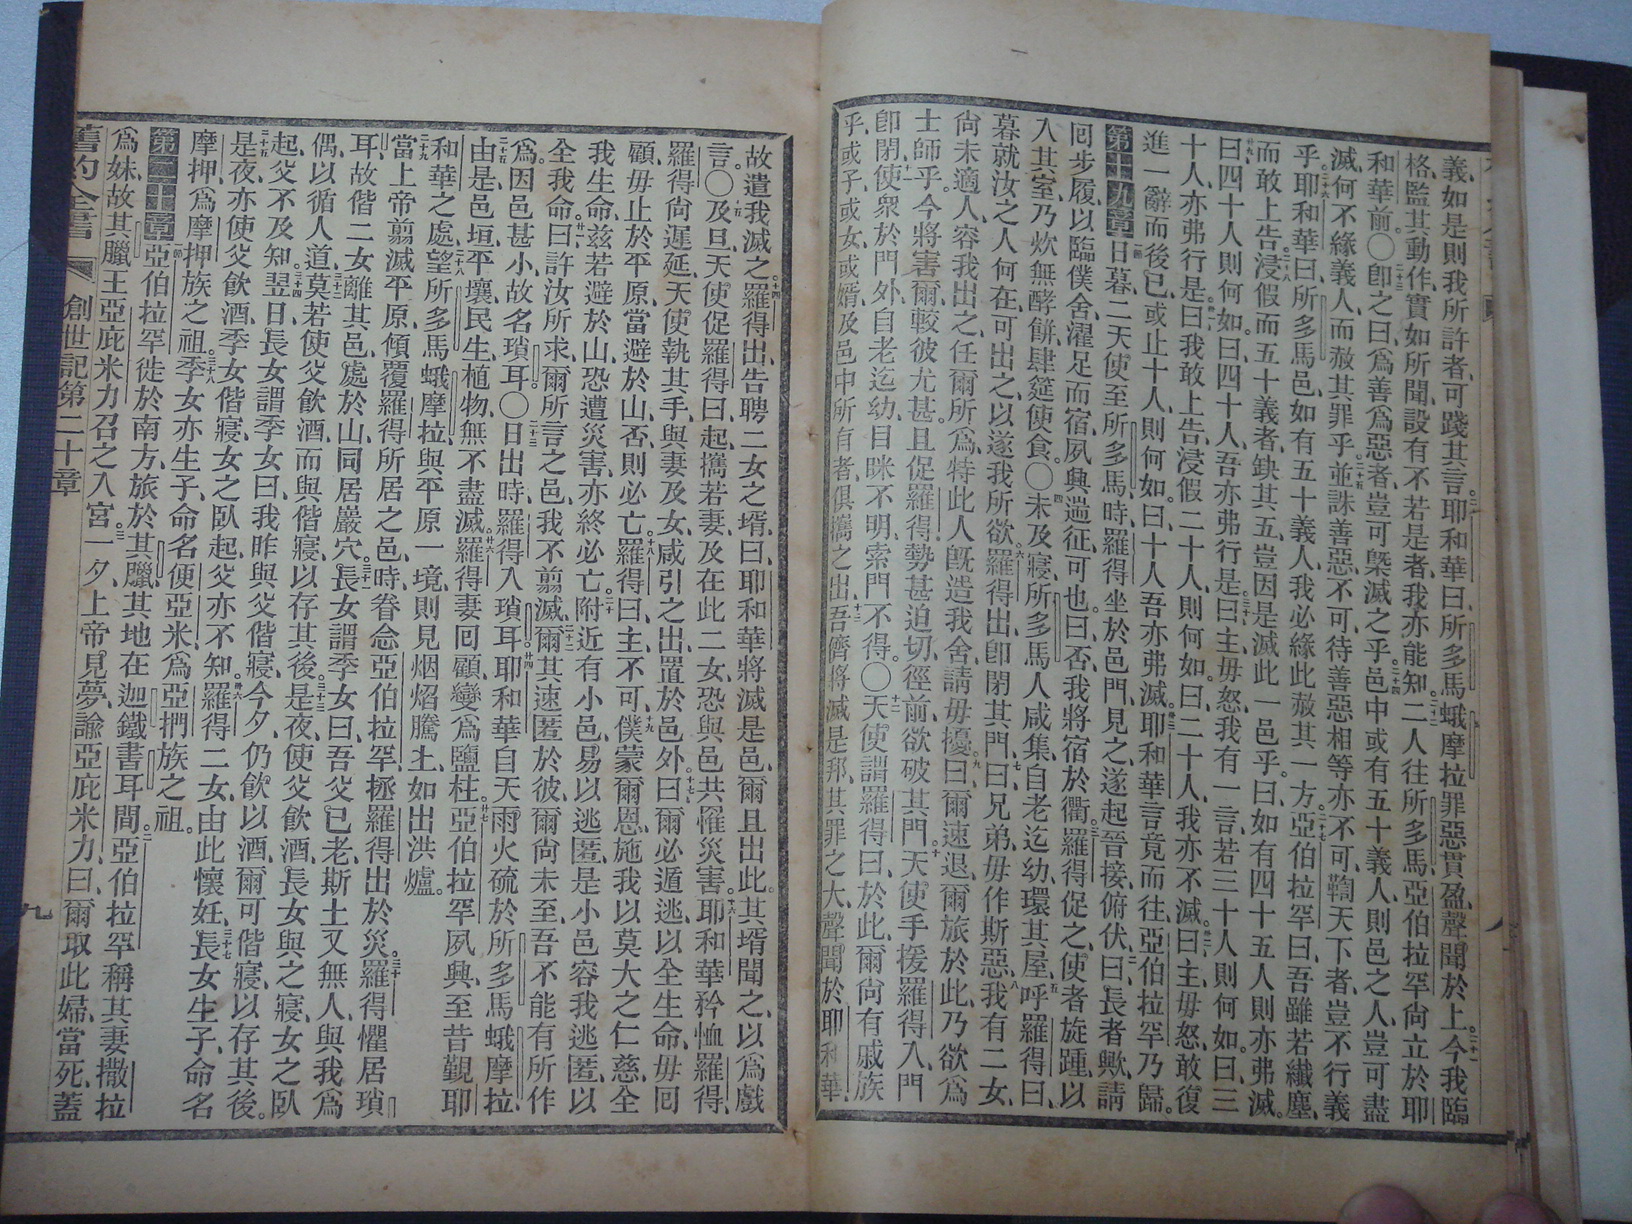 義、如是則我所許者、可踐其言。耶和華曰、所多馬、蛾摩拉、罪惡貫盈、聲聞於上。今我臨
格、監其動作、實如所聞、設有不若是者、我亦能知。二人往所多馬、亞伯拉罕尙立於耶
和華前。〇卽之曰、爲善爲惡者、豈可槩滅之乎。邑中或有五十義人、則邑之人、豈可盡
滅、何不緣義人、而赦其罪乎。並誅善惡、不可、待善惡相等、亦不可、鞫天下者、豈不行義
乎。耶和華曰、所多馬邑、如有五十義人、我必緣此赦其一方。亞伯拉罕曰、吾雖若纖塵、
而敢上告、浸假而五十義者、缺其五、豈因是滅此一邑乎。曰、如有四十五人、則亦弗滅。
曰、四十人則何如。曰、四十人、吾亦弗行是。曰、主毋怒、我有一言、若三十人則何如。曰、三
十人、亦弗行是。曰、我敢上告、浸假二十人、則何如。曰、二十人、我亦不滅。曰、主毋怒、敢復
進一辭而後已、或止十人、則何如。曰、十人吾亦弗滅。耶和華言竟而往、亞伯拉罕乃歸。
第十九章 日暮、二天使至所多馬、時羅得坐於邑門、見之、遂起、晉接、俯伏曰、長者歟、請
囘步履、以臨僕舍、濯足而宿、夙興遄征可也。曰、否、我將宿於衢。羅得促之、使者旋踵、以
入其室、乃炊無酵餠、肆筵使食。〇未及寢、所多馬人咸集、自老迄幼、環其屋、呼羅得曰、
暮就汝之人何在、可出之、以遂我所欲。羅得出、卽閉其門、曰、兄弟毋作斯惡、我有二女、
尙未適人、容我出之、任爾所爲、特此人旣造我舍、請毋擾。曰、爾速退、爾旅於此、乃欲爲
士師乎、今將害爾、較彼尤甚。且促羅得、勢甚迫切、徑前、欲破其門。天使手援羅得入門
卽閉、使衆於門外、自老迄幼、目眯不明、索門不得。〇天使謂羅得曰、於此、爾尙有戚族
乎、或子、或女、或婿、及邑中所有者、俱攜之出、吾儕將滅是邦、其罪之大、聲聞於耶和華、
故遣我滅之。羅得出、告聘二女之壻曰、耶和華將滅是邑、爾且出此。其壻聞之、以爲戲
言。〇及旦、天使促羅得曰、起、攜若妻、及在此二女、恐與邑共罹災害。耶和華矜恤羅得、
羅得尙遲延、天使執其手、與妻及女、咸引之出、置於邑外。曰、爾必遁逃、以全生命、毋囘
顧、毋止於平原、當避於山、否則必亡。羅得曰、主不可、僕蒙爾恩、施我以莫大之仁慈、全
我生命、茲若避於山、恐遭災害、亦終必亡。附近有小邑、易以逃匿、是小邑容我逃匿以
全我命。曰、許汝所求、爾所言之邑、我不翦滅。爾其速匿於彼、爾尙未至、吾不能有所作
爲。因邑甚小、故名瑣耳。〇日出時、羅得入瑣耳。耶和華自天雨火硫、於所多馬、蛾摩拉、
由是邑垣平壤、民生植物、無不盡滅。羅得妻囘顧、變爲鹽柱。亞伯拉罕夙興、至昔覲耶
和華之處、望所多馬蛾摩拉、與平原一境、則見烟焰騰上、如出洪爐。
當上帝翦滅平原、傾覆羅得所居之邑時、眷念亞伯拉罕、拯羅得出於災。羅得懼居瑣
耳、故偕二女離其邑、處於山、同居巖穴。長女謂季女曰、吾父已老、斯土又無人、與我爲
偶、以循人道、莫若使父飮酒、而與偕寢、以存其後。是夜、使父飮酒、長女與之寢、女之臥
起、父不及知。翌日、長女謂季女曰、我昨與父偕寢、今夕、仍飮以酒、爾可偕寢、以存其後。
是夜、亦使父飮酒、季女偕寢、女之臥起、父亦不知。羅得二女、由此懷妊。長女生子、命名
摩押、爲摩押族之祖。季女亦生子、命名便亞米、爲亞捫族之祖。
第二十章 亞伯拉罕徙於南方、旅於其臘、其地在迦鐵書耳間。亞伯拉罕稱其妻撒拉
爲妹、故其臘王亞庇米力召之入宮。一夕、上帝見夢、諭亞庇米力、曰、爾取此婦、當死、蓋
舊約全書 創世記第二十章 九